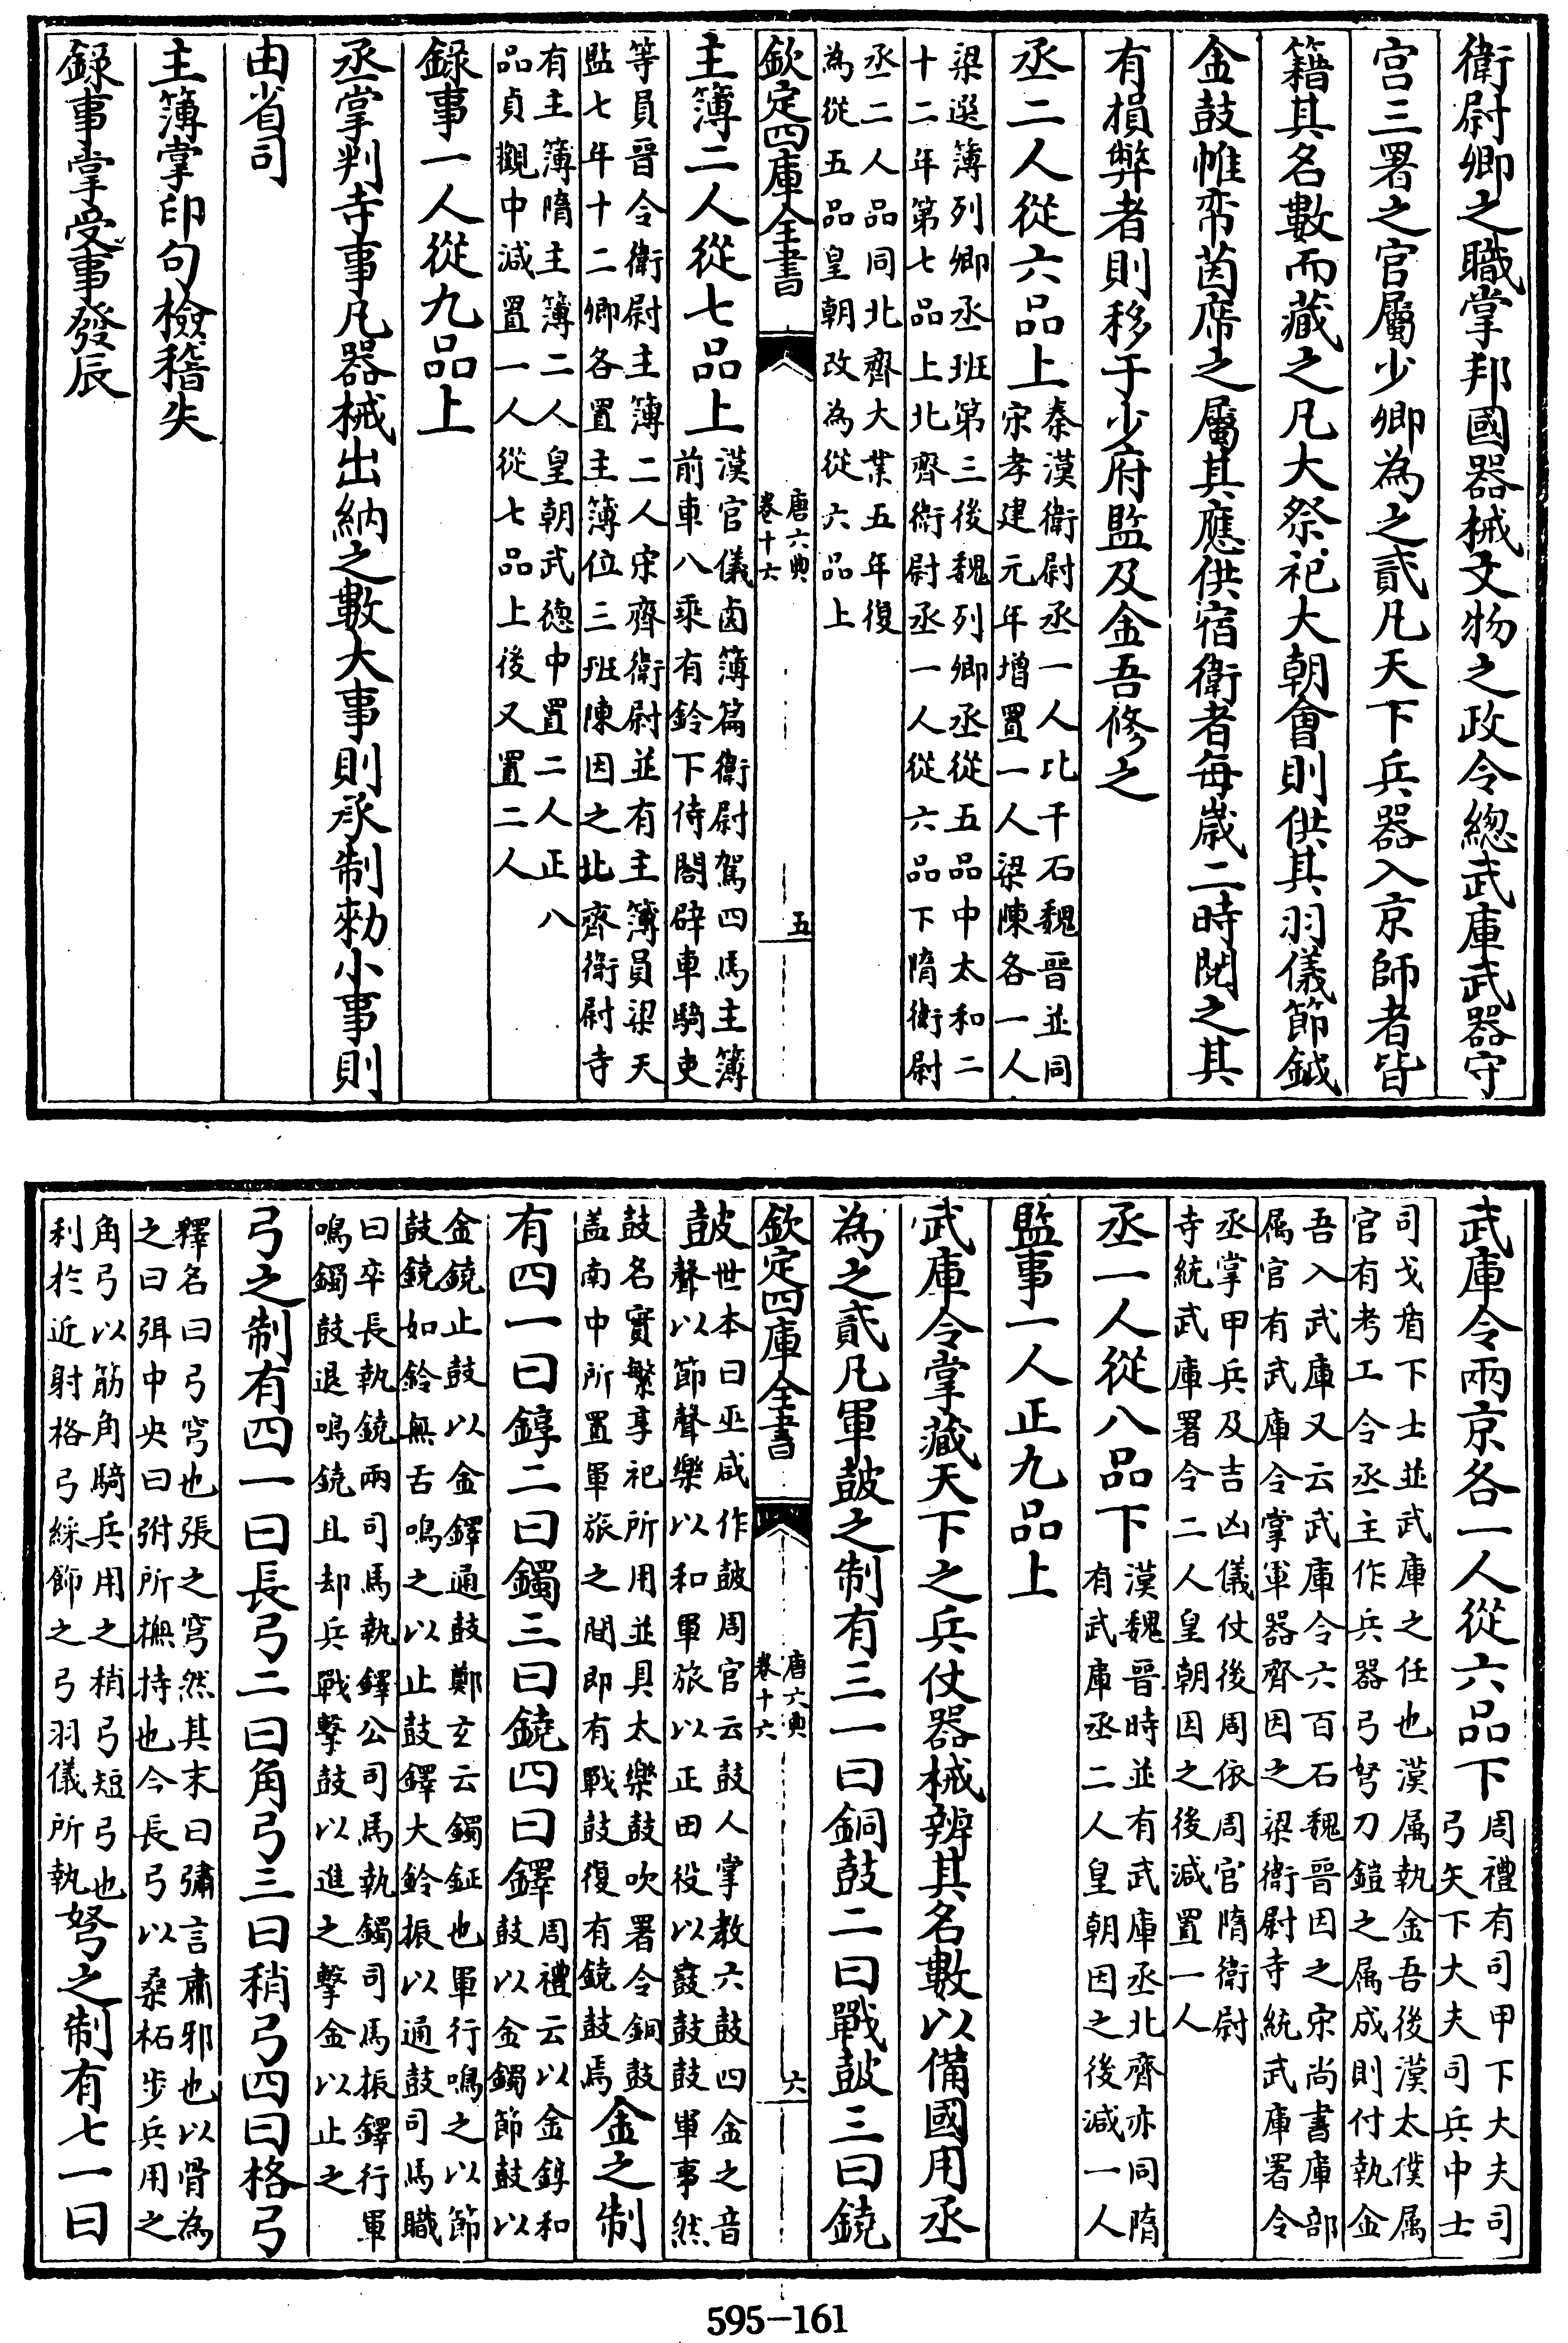 衛尉卿之職掌邦國器械文物之政令總武庫武器守
宫三署之官屬少卿為之貳凡天下兵器入京師者皆
籍其名數而藏之凡大祭祀大朝會則供其羽儀節鉞
金鼓帷帟茵席之屬其應供宿衛者每歳二時閲之其
有損弊者則移于少府監及金吾修之
丞二人從六品上秦漢衛尉丞一人比千石魏晉並同
宋孝建元年增置一人梁陳各一人
梁選簿列卿丞班第三後魏列卿丞從五品中太和二
十二年第七品上北齊衛尉丞一人從六品下隋衛尉
丞二人品同北齊大業五年復
為從五品皇朝改為從六品上
欽定四庫全書
唐六典
卷十六
五
主簿二人從七品上漢官儀鹵簿篇衛尉駕四馬主簿
前車八乘有鈴下侍閤辟車騎吏
等員晉令衛尉主簿二人宋齊衛尉並有主簿員梁天
監七年十二卿各置主簿位三班陳因之北齊衛尉寺
有主簿隋主簿二人皇朝武徳中置二人正八
品貞觀中減置一人從七品上後又置二人
録事一人從九品上
丞掌判寺事凡器械出納之數大事則承制勑小事則
由省司
主簿掌印句檢稽失
録事掌受事發辰
武庫令兩京各一人從六品下周禮有司甲下大夫司
弓矢下大夫司兵中士
司戈盾下士並武庫之任也漢属執金吾後漢太僕属
官有考工令丞主作兵器弓弩刀鎧之属成則付執金
吾入武庫又云武庫令六百石魏晉因之宋尚書庫部
属官有武庫令掌軍器齊因之梁衛尉寺統武庫署令
丞掌甲兵及吉凶儀仗後周依周官隋衛尉
寺統武庫署令二人皇朝因之後減置一人
丞一人從八品下漢魏晉時並有武庫丞北齊亦同隋
有武庫丞二人皇朝因之後減一人
監事一人正九品上
武庫令掌藏天下之兵仗器械辨其名數以備國用丞
為之貳凡軍鼓之制有三一曰銅鼓二曰戰鼓三曰鐃
欽定四庫全書
唐六典
卷十六
六
鼓世本曰巫咸作鼓周官云鼓人掌教六鼓四金之音
聲以節聲樂以和軍旅以正田役以鼖鼓鼓軍事然
鼓名實繁享祀所用並具太樂鼓吹署令銅鼓
盖南中所置軍旅之間即有戰鼓復有鐃鼓焉金之制
有四一曰錞二曰鐲三曰鐃四曰鐸周禮云以金錞和
鼓以金鐲節鼓以
金鐃止鼓以金鐸通鼓鄭玄云鐲鉦也軍行鳴之以節
鼓鐃如鈴無舌鳴之以止鼓鐸大鈴振以通鼓司馬職
曰卒長執鐃兩司馬執鐸公司馬執鐲司馬振鐸行軍
鳴鐲鼓退鳴鐃且却兵戰擊鼓以進之擊金以止之
弓之制有四一曰長弓二曰角弓三曰稍弓四曰格弓
釋名曰弓穹也張之穹然其末曰彇言肅邪也以骨為
之曰弭中央曰弣所撫持也今長弓以桑柘步兵用之
角弓以筋角騎兵用之稍弓短弓也
利於近射格弓綵飾之弓羽儀所執弩之制有七一曰
595-161